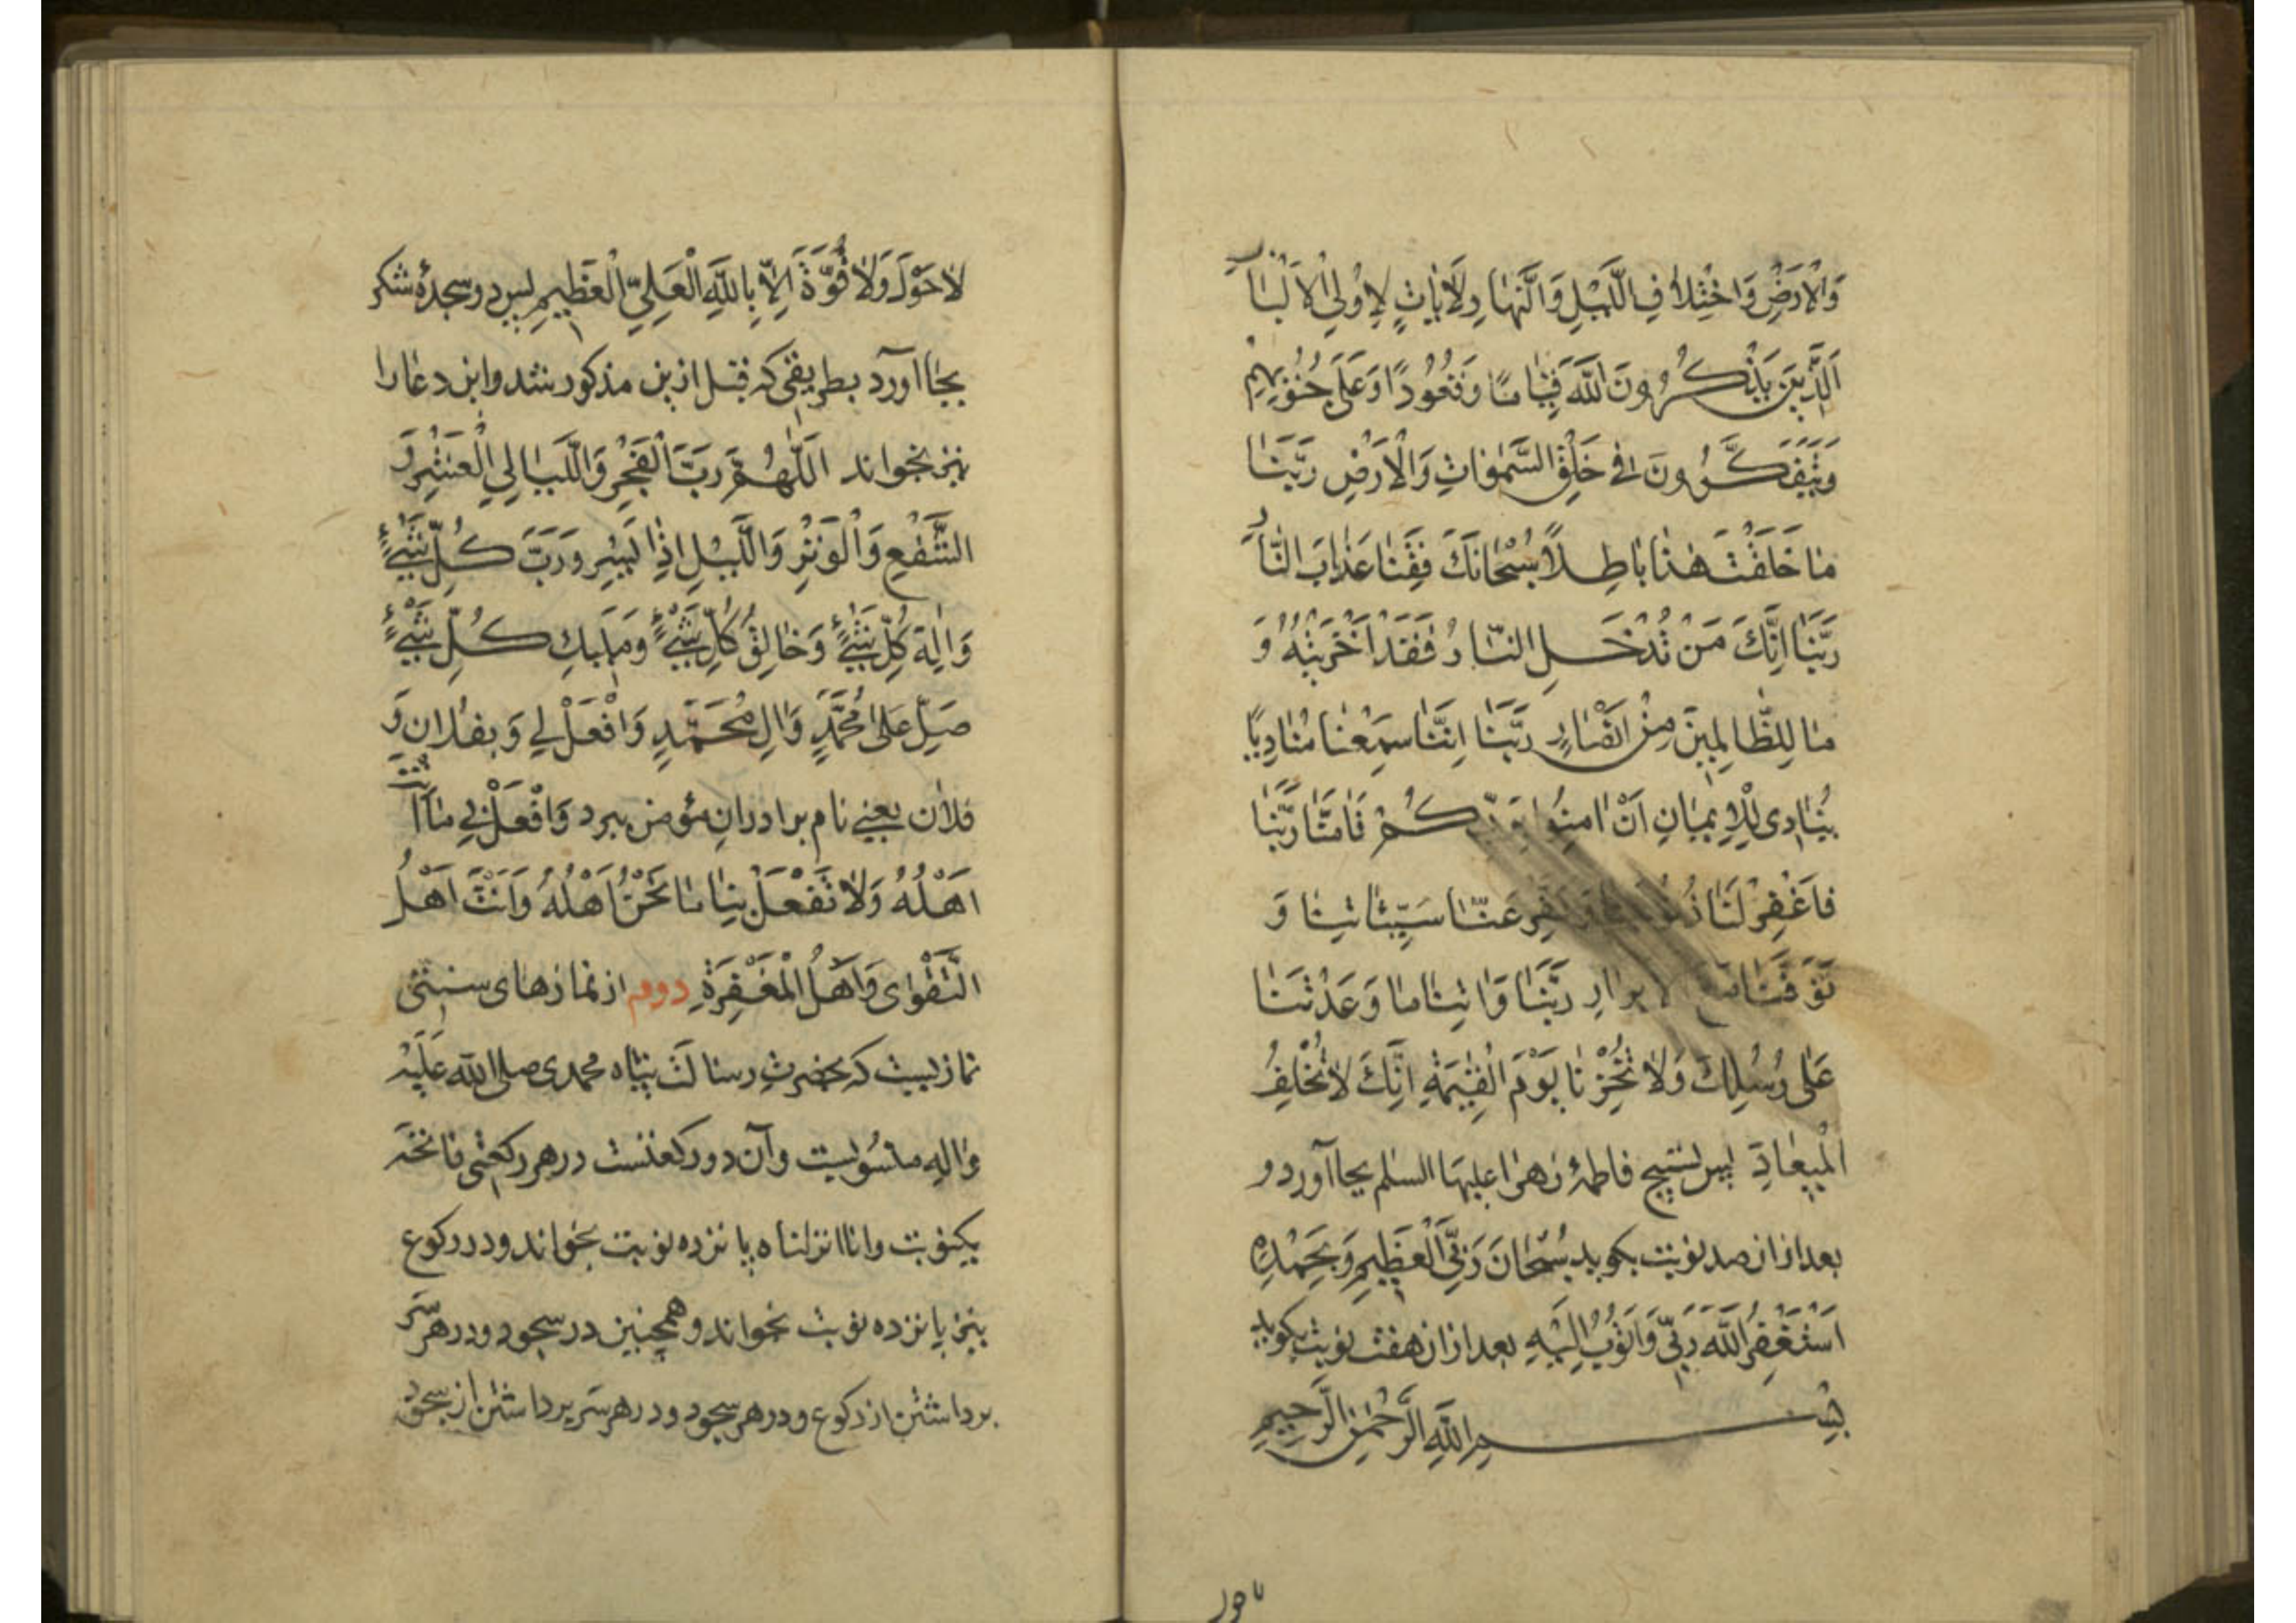 وَالْاَرْضِ وَاخْتِلَافِ الَّیْلِ وَالنَّهَارِ لَاٰیَاتٍ لِاُولِی الْاَلْبَابِ
اَلَّذِیْنَ یَذْكُرُونَ اللّٰهَ قِیَامًا وَقُعُودًا وَعَلٰی جُنُوبِهِمْ
وَیَتَفَكَّرُونَ فِی خَلْقِ السَّمٰوَاتِ وَالْاَرْضِ رَبَّنَا
مَا خَلَقْتَ هٰذَا بَاطِلًا سُبْحَانَكَ فَقِنَا عَذَابَ النَّارِ
رَبَّنَا اِنَّكَ مَنْ تُدْخِلِ النَّارَ فَقَدْ اَخْزَیْتَهُ وَ
مَا لِلظَّالِمِینَ مِنْ اَنْصَارٍ رَبَّنَا اِنَّنَا سَمِعْنَا مُنَادِیًا
یُنَادِی لِلْاِیمَانِ اَنْ اٰمِنُوا بِرَبِّكُمْ فَاٰمَنَّا رَبَّنَا
فَاغْفِرْ لَنَا ذُنُوبَنَا وَكَفِّرْ عَنَّا سَیِّئَاتِنَا وَ
تَوَفَّنَا مَعَ الْاَبْرَارِ رَبَّنَا وَاٰتِنَا مَا وَعَدْتَنَا
عَلٰی رُسُلِكَ وَلَا تُخْزِنَا یَوْمَ الْقِیٰمَةِ اِنَّكَ لَا تُخْلِفُ
الْمِیعَادَ پس تسبیح فاطمهٔ زهرا علیها السلم بجا آورد و
بعد ازان صد نوبت بکوید سُبْحَانَ رَبِّیَ الْعَظِیمِ وَبِحَمْدِهِ
اَسْتَغْفِرُ اللّٰهَ رَبِّی وَاَتُوبُ اِلَیْهِ بعد ازان هفت نوبت بکوید
بِسْمِ اللّٰهِ الرَّحْمٰنِ الرَّحِیمِ
لاحول
لَا حَوْلَ وَلَا قُوَّةَ اِلَّا بِاللّٰهِ الْعَلِیِّ الْعَظِیمِ پس دو سجدهٔ شکر
بجا آورد بطریقی که قبل ازین مذکور شد و این دعا را
نیز بخواند اَللّٰهُمَّ رَبَّ الْفَجْرِ وَاللَّیَالِی الْعَشْرِ وَ
الشَّفْعِ وَالْوَتْرِ وَاللَّیْلِ اِذَا یَسْرِ وَرَبَّ كُلِّ شَیْءٍ
وَاِلٰهَ كُلِّ شَیْءٍ وَخَالِقَ كُلِّ شَیْءٍ وَمَلِیكَ كُلِّ شَیْءٍ
صَلِّ عَلٰی مُحَمَّدٍ وَاٰلِ مُحَمَّدٍ وَافْعَلْ لِی وَبِفُلَانٍ وَ
فلان یعنی نام برادران مؤمن ببرد وَافْعَلْ بِی مَا اَنْتَ
اَهْلُهُ وَلَا تَفْعَلْ بِنَا مَا نَحْنُ اَهْلُهُ وَاَنْتَ اَهْلُ
التَّقْوٰی وَاَهْلُ الْمَغْفِرَةِ دوم از نمازهای سنتی
نمازیست که بحضرت رسالت پناه محمدی صلی الله عَلَیْه
وَاٰلِهِ منسوبست و آن دو رکعتست در هر رکعتی فاتحه
یکنوبت و انا انزلناه پانزده نوبت بخواند و در رکوع
نیز پانزده نوبت بخواند و همچنین در سجود و در هر سر
برداشتن از رکوع و در هر سجود و در هر سر برداشتن از سجود